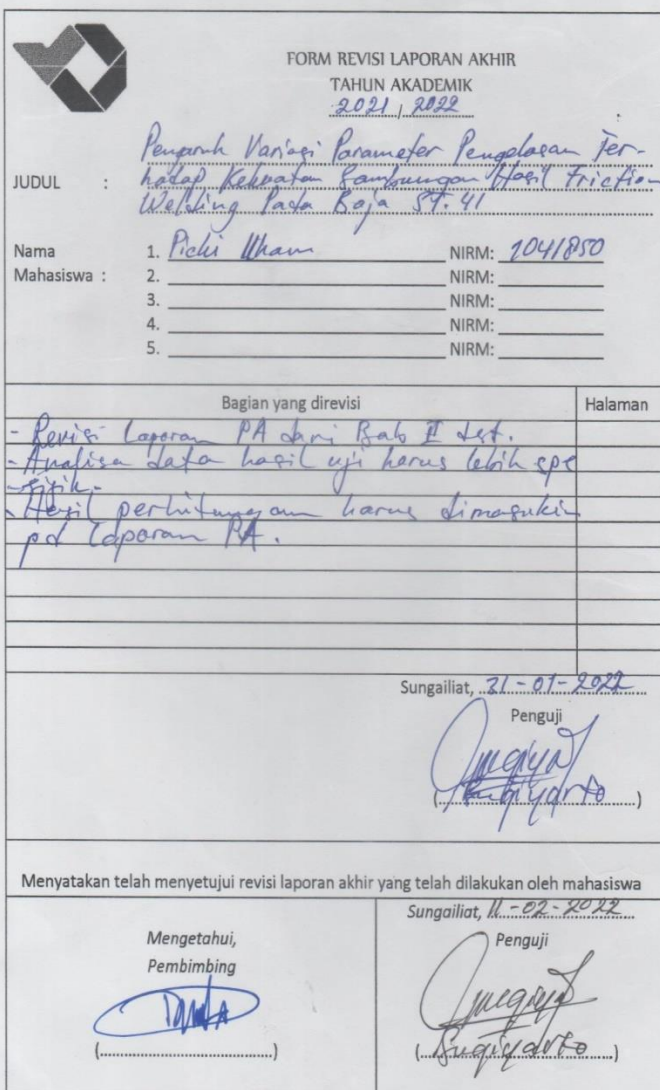 FORM REVISI LAPORAN AKHIR
TAHUN AKADEMIK
2021 / 2022
JUDUL : Pengaruh Variasi Parameter Pengelasan Ter-
hadap Kekuatan Sambungan Hasil Friction
Welding Pada Baja ST. 41
Nama Mahasiswa :
1. Picki Ilham NIRM: 1041850
2. NIRM:
3. NIRM:
4. NIRM:
5. NIRM:
Bagian yang direvisi Halaman
- Revisi Laporan PA dari Bab I dst.
- Analisa data hasil uji harus lebih spe
-sifik.
- Hasil perhitungan harus dimasukin
pd Laporan PA.
Sungailiat, 31-01-2022
Penguji
(Sugiyarto)
Menyatakan telah menyetujui revisi laporan akhir yang telah dilakukan oleh mahasiswa
Mengetahui,
Pembimbing
(..............................)
Sungailiat, 11-02-2022
Penguji
(Sugiyarto)